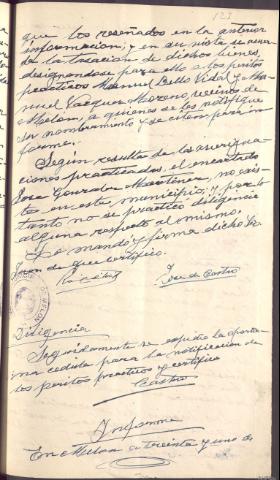 123
que los reseñados en la anterior
información; y en su vista se acuerda
la tasación de dichos bienes,
designandose para ello a los peritos
practicos Manuel Bello Vidal y Ma-
nuel Vazquez Moreno, vecinos de
Melon, a quienes se les notifique
su nombramiento y se citen para in
forme.
Según resulta de las averigua-
ciones practicadas, el encartado
Jose Gonzalez Martinez, no exis-
te en este municipio, y por lo
tanto no se practicó diligencia
alguna respecto al mismo.
Lo mandó y firma dicho Sr.
Juez de que certifico.
Jose de Castro
MELON
Diligencia
Seguidamente se expidio la oportu-
na cedula para la notificacion de
los peritos practicos y certifico
Castro
Informe
En Melon a treinta y uno de